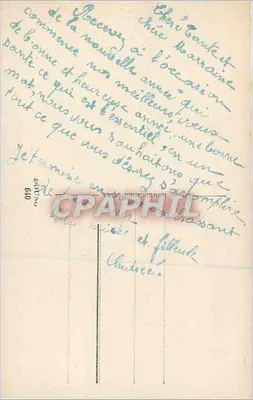 Chère Tante et
chère Marraine
Recevez à l'occasion
de la nouvelle année qui
commence nos meilleurs vœux
de bonne et heureuse année, une bonne
santé ce qui est l'essentiel, en un
mot, nous vous souhaitons que
tout ce que vous désirez s'accomplisse.
Je termine en vous embrassant
de
nièce et filleule
Andrée.
610
CPAPHIL